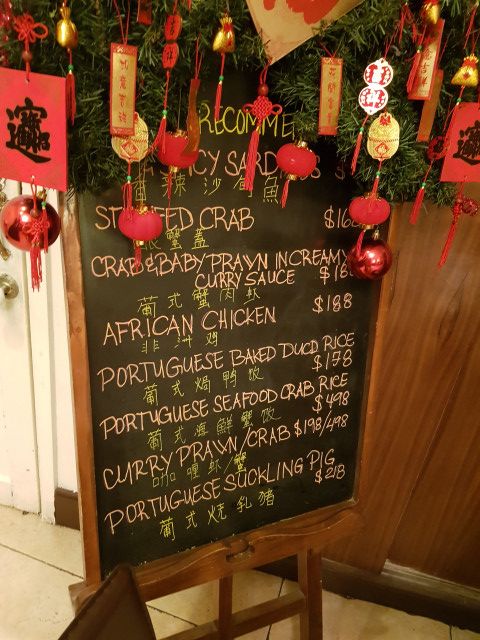 RECOMME
ICY SARD
辣沙甸魚
STUFFED CRAB
釀蟹蓋
CRAB & BABY PRAWN IN CREAMY
CURRY SAUCE
葡式蟹肉虾
AFRICAN CHICKEN $188
非洲鸡
PORTUGUESE BAKED DUCD RICE
$178
葡式焗鸭饭
PORTUGUESE SEAFOOD CRAB RICE
$498
葡式海鮮蟹饭
CURRY PRAWN/CRAB $198/498
咖喱虾/蟹
PORTUGUESE SUCKLING PIG
$218
葡式烧乳豬